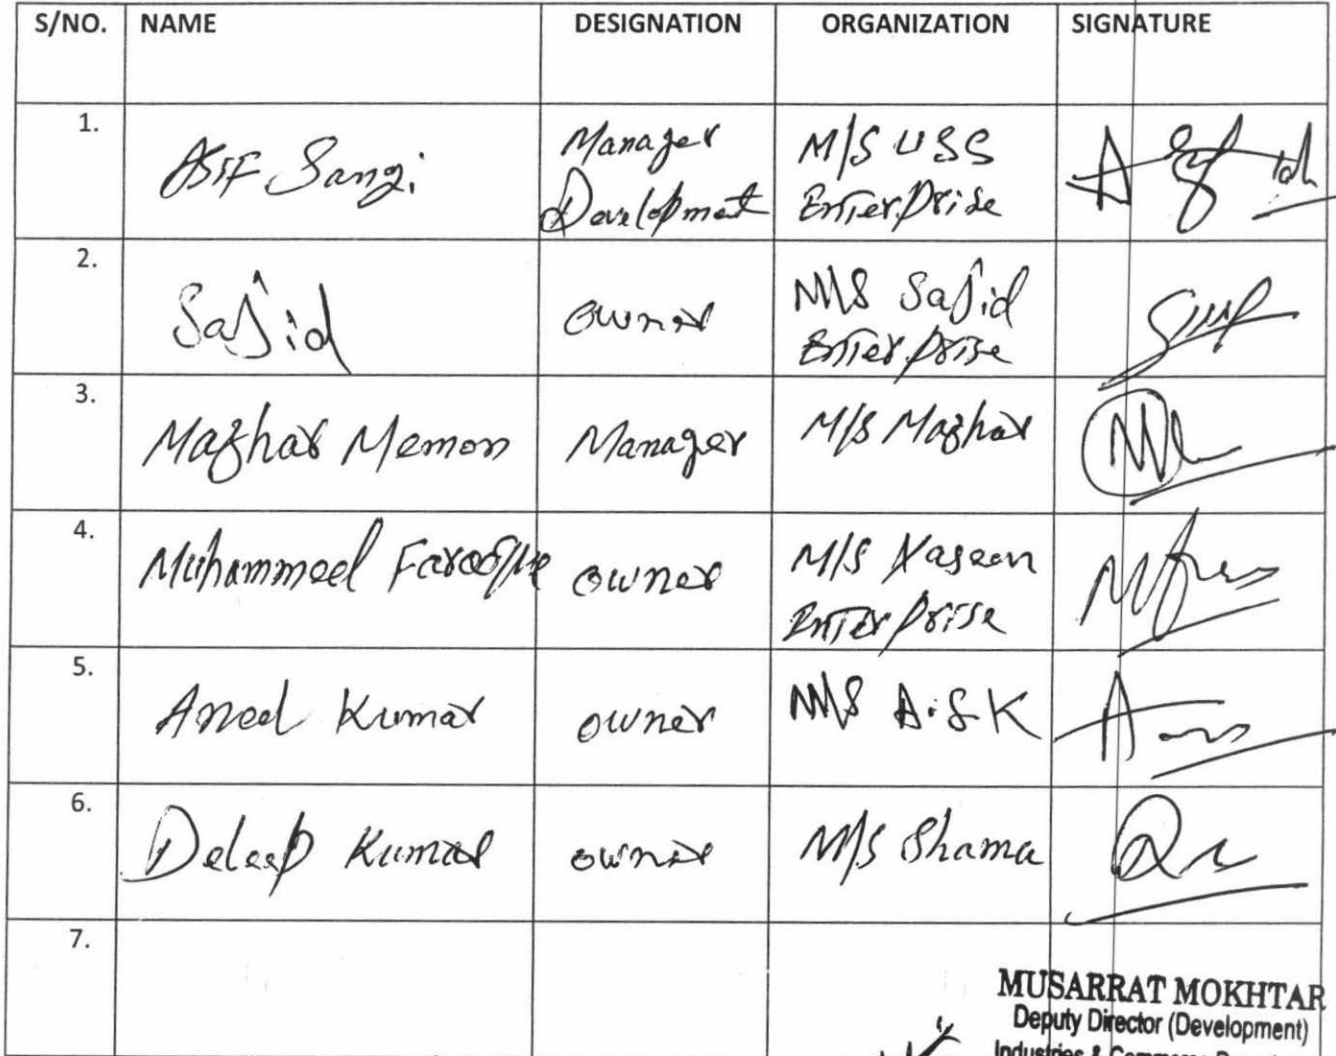 S/NO. NAME DESIGNATION ORGANIZATION SIGNATURE
1. Asif Sangi Manager Development M/S USS Enterprise
2. Sajid owner M/S Sajid Enterprise
3. Mazhar Memon Manager M/S Mazhar
4. Muhammed Farooque owner M/S Enterprise
5. Aneel Kumar owner M/S A.S K
6. Deleep Kumar owner M/S Shama
7.
MUSARRAT MOKHTAR
Deputy Director (Development)
Industries & Commerce